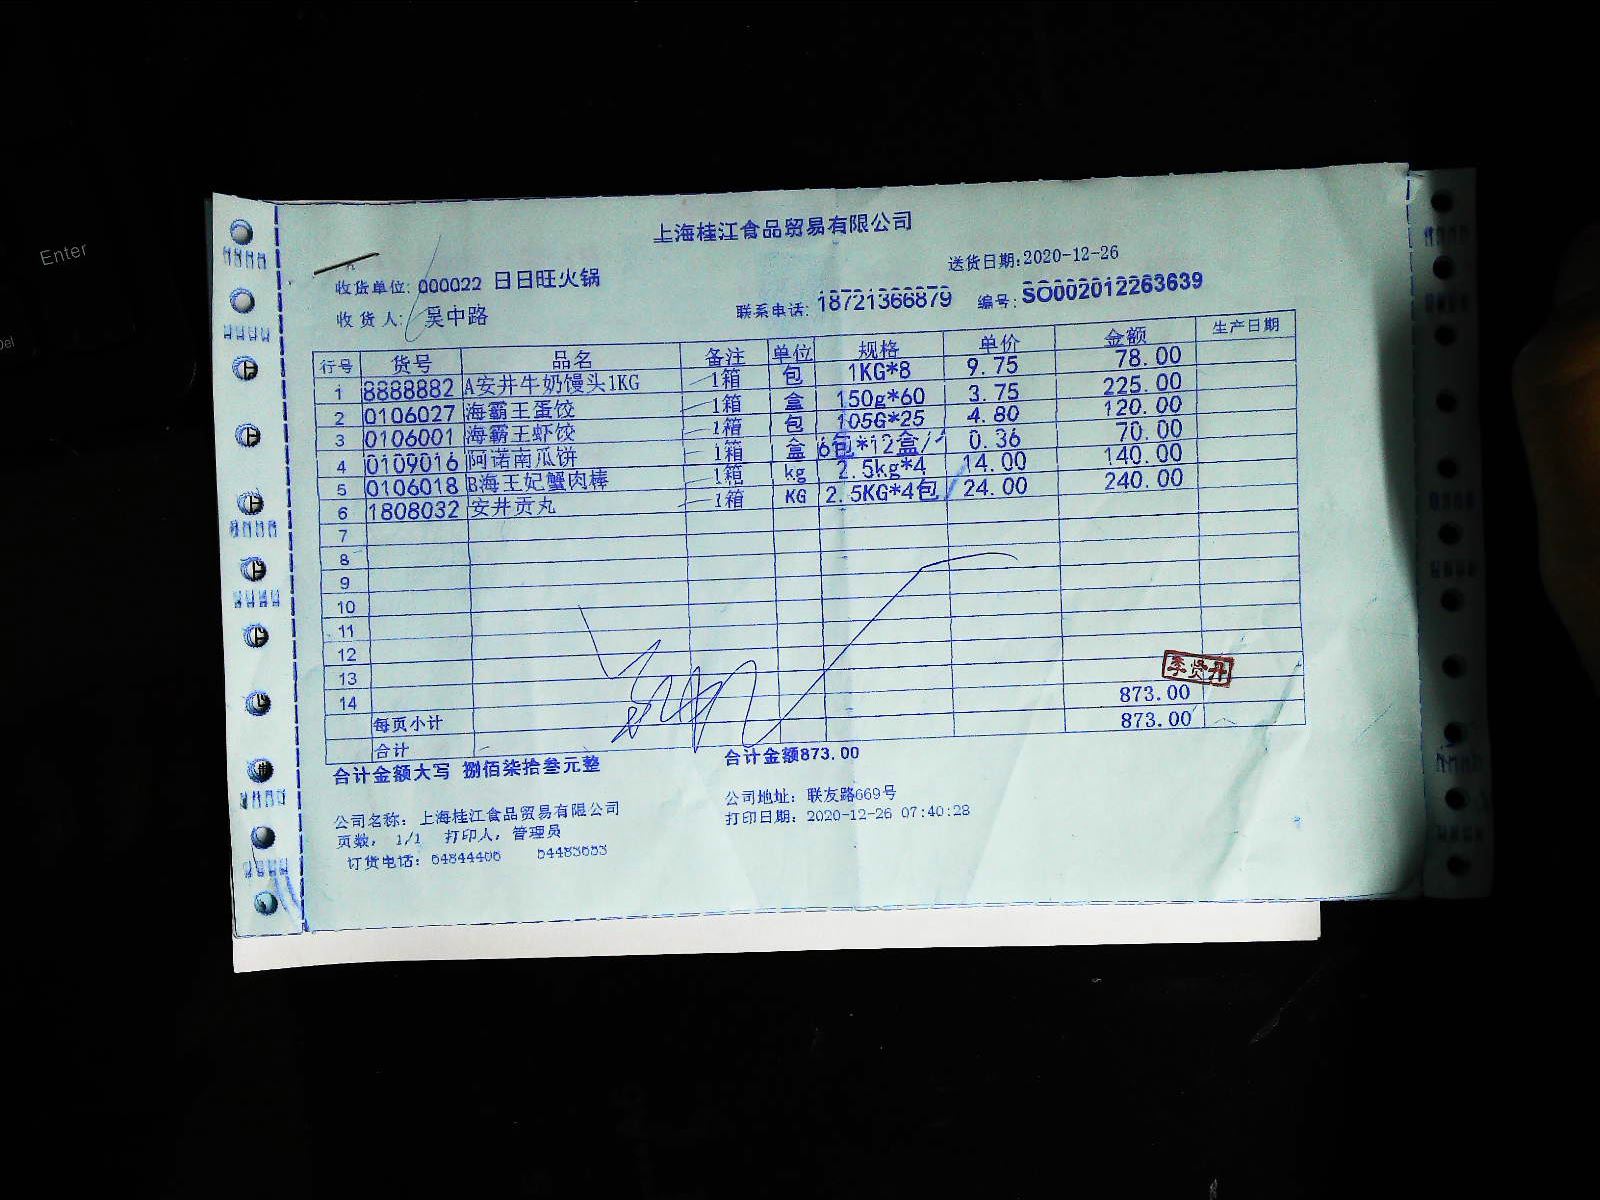 Enter
上海桂江食品贸易有限公司
送货日期:2020-12-26
收货单位: 000022 日日旺火锅
收货人: 吴中路 联系电话: 18721366879 编号: SO002012263639
行号 货号 品名 备注 单位 规格 单价 金额 生产日期
1 8888882 A安井牛奶馒头1KG 1箱 包 1KG*8 9.75 78.00
2 0106027 海霸王蛋饺 1箱 盒 150g*60 3.75 225.00
3 0106001 海霸王虾饺 1箱 包 105G*25 4.80 120.00
4 0109016 阿诺南瓜饼 1箱 盒 6包*12盒/ 0.36 70.00
5 0106018 B海王妃蟹肉棒 1箱 kg 2.5kg*4 14.00 140.00
6 1808032 安井贡丸 1箱 KG 2.5KG*4包 24.00 240.00
7
8
9
10
11
12
13
李贤丹
14 873.00
每页小计 873.00
合计
合计金额大写 捌佰柒拾叁元整 合计金额873.00
公司名称: 上海桂江食品贸易有限公司 公司地址: 联友路669号
页数, 1/1 打印人, 管理员 打印日期: 2020-12-26 07:40:28
订货电话: 64844406 54485653